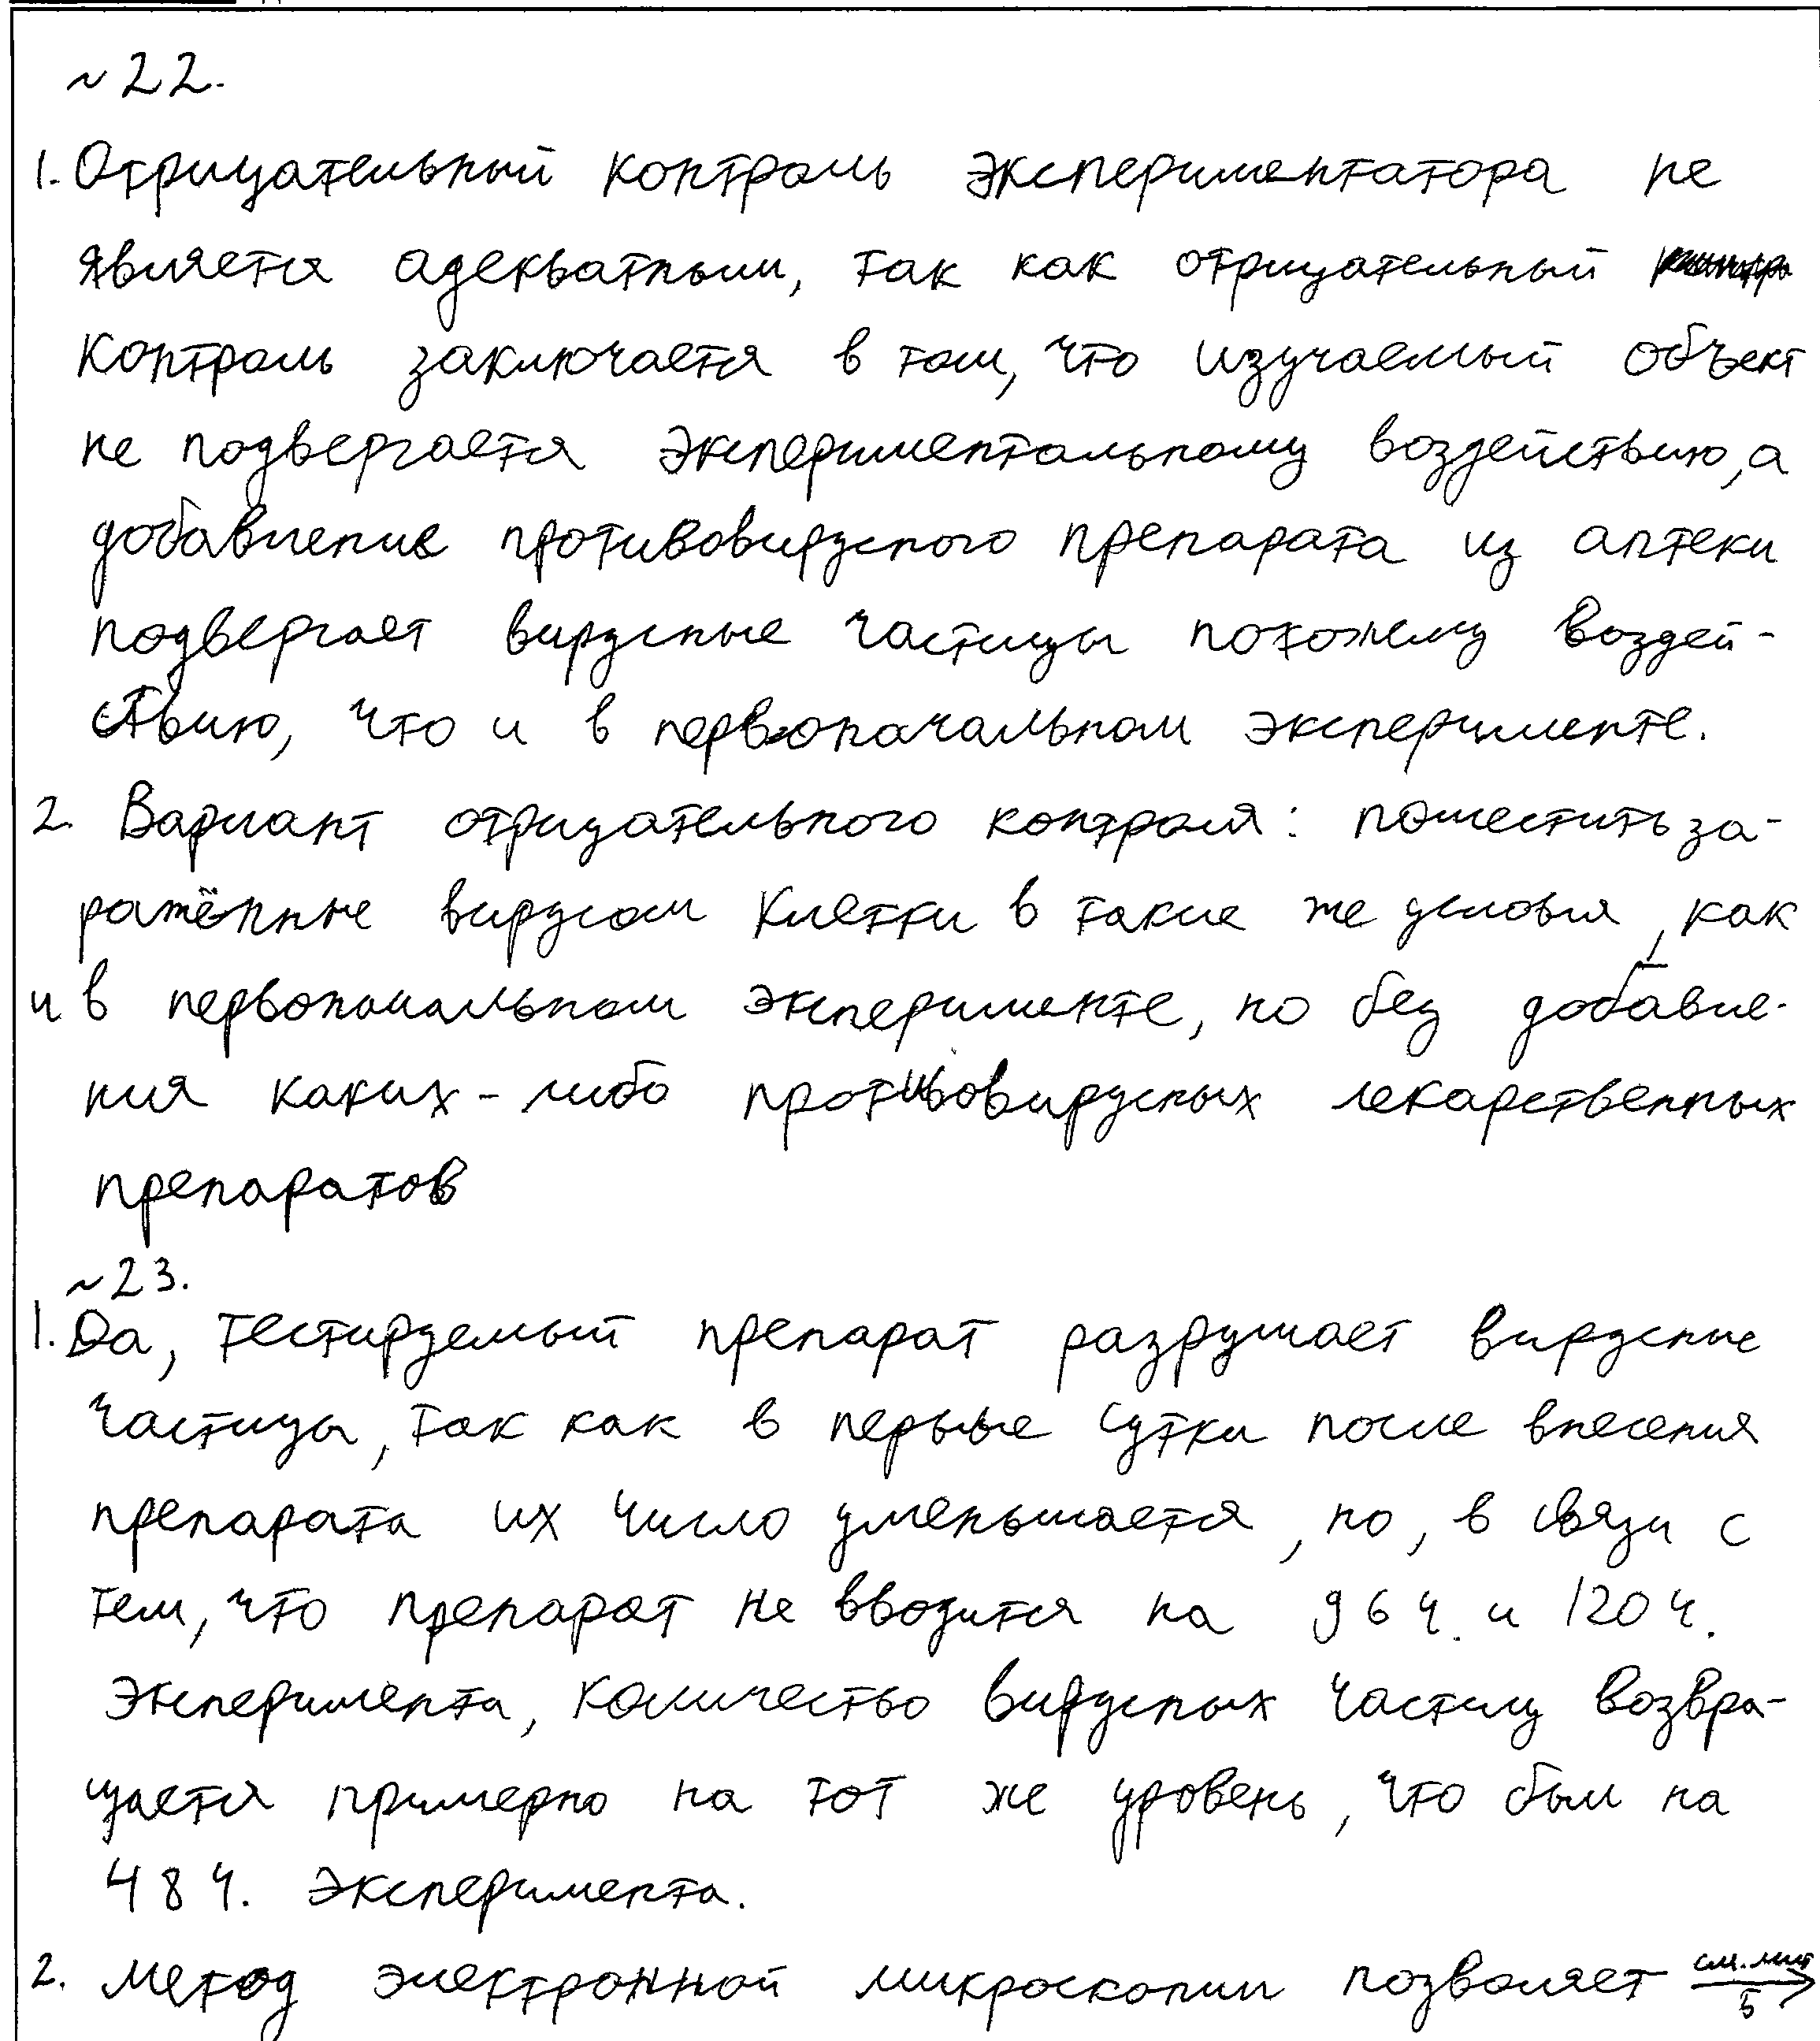 ~22.
1. Отрицательный контроль экспериментатора не
является адекватным, так как отрицательный
контроль заключается в том, что изучаемый объект
не подвергается экспериментальному воздействию, а
добавление противовирусного препарата из аптеки
подвергает вирусные частицы похожему воздей-
ствию, что и в первоначальном эксперименте.
2. Вариант отрицательного контроля: поместить за-
ражённые вирусом клетки в такие же условия, как
и в первоначальном эксперименте, но без добавле-
ния каких-либо противовирусных лекарственных
препаратов
~23.
1. Да, тестируемый препарат разрушает вирусные
частицы, так как в первые сутки после внесения
препарата их число уменьшается, но, в связи с
тем, что препарат не вводится на 96 ч. и 120 ч.
эксперимента, количество вирусных частиц возвра-
щается примерно на тот же уровень, что был на
48 ч. эксперимента.
2. Метод электронной микроскопии позволяет см. лист
5